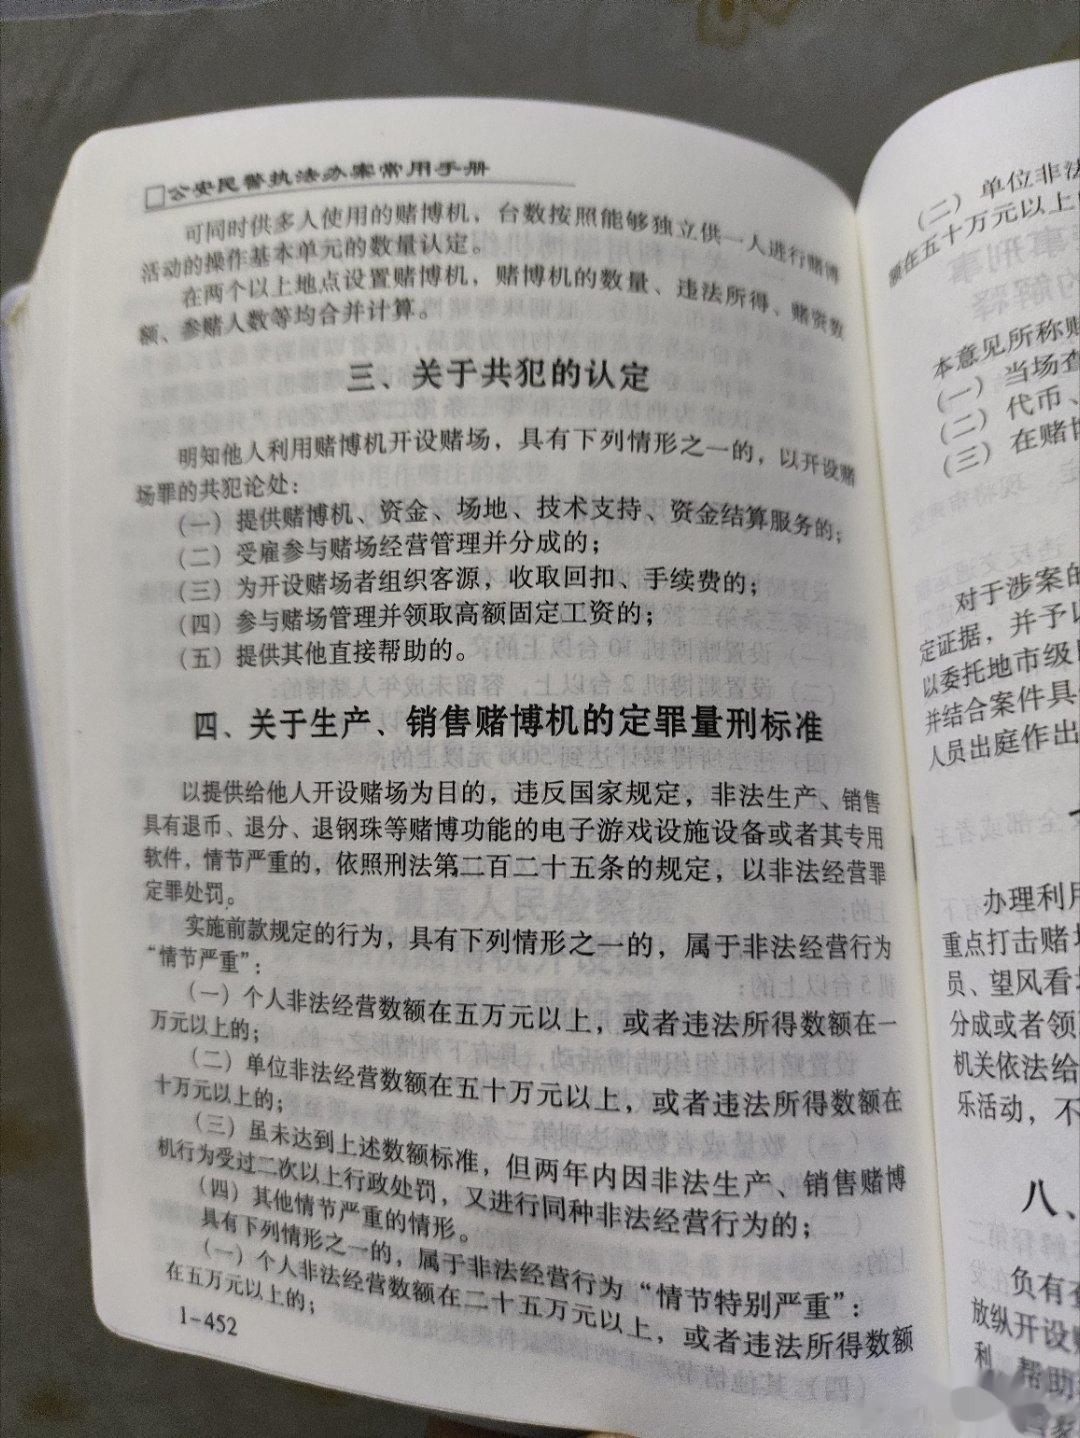 公安民警执法办案常用手册
可同时供多人使用的赌博机，台数按照能够独立供一人进行赌博
活动的操作基本单元的数量认定。
在两个以上地点设置赌博机，赌博机的数量、违法所得、赌资数
额、参赌人数等均合并计算。
三、关于共犯的认定
明知他人利用赌博机开设赌场，具有下列情形之一的，以开设赌
场罪的共犯论处：
（一）提供赌博机、资金、场地、技术支持、资金结算服务的；
（二）受雇参与赌场经营管理并分成的；
（三）为开设赌场者组织客源，收取回扣、手续费的；
（四）参与赌场管理并领取高额固定工资的；
（五）提供其他直接帮助的。
四、关于生产、销售赌博机的定罪量刑标准
以提供给他人开设赌场为目的，违反国家规定，非法生产、销售
具有退币、退分、退钢珠等赌博功能的电子游戏设施设备或者其专用
软件，情节严重的，依照刑法第二百二十五条的规定，以非法经营罪
定罪处罚。
实施前款规定的行为，具有下列情形之一的，属于非法经营行为
“情节严重”：
（一）个人非法经营数额在五万元以上，或者违法所得数额在一
万元以上的；
（二）单位非法经营数额在五十万元以上，或者违法所得数额在
十万元以上的；
（三）虽未达到上述数额标准，但两年内因非法生产、销售赌博
机行为受过二次以上行政处罚，又进行同种非法经营行为的；
（四）其他情节严重的情形。
具有下列情形之一的，属于非法经营行为“情节特别严重”：
（一）个人非法经营数额在二十五万元以上，或者违法所得数额
在五万元以上的；
1-452
（二）单位非法
额在五十万元以上
本意见所称赌
（一）当场查
（二）代币、
（三）在赌博
对于涉案的
定证据，并予以
以委托地市级
并结合案件具
人员出庭作出
办理利用
重点打击赌场
员、望风看场
分成或者领
机关依法给
乐活动，不
八、
负有查
放纵开设赌
利
帮助